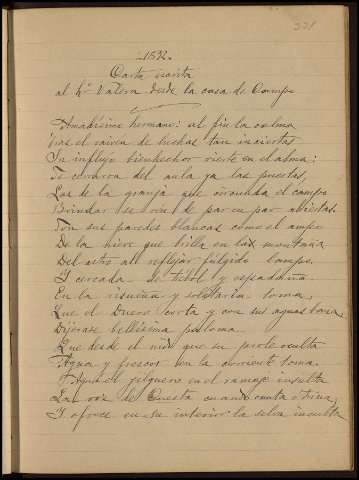 331
1892.
Carta escrita
al hº Valera desde la casa de Campo
Amadísimo hermano: al fin la calma
Tras el vaivén de luchas tan inciertas
Su influjo bienhechor vierte en el alma:
Se cerraron del aula ya las puertas,
Las de la granja que circunda el campo
Brindar se ven de par en par abiertas.
Son sus paredes blancas como el ampo
De la nieve que brilla en la montaña
Del astro al reflejar fúlgido lampo.
Y cercada de trébol y espadaña
En la risueña y solitaria loma,
Que el Duero corta y con sus aguas baña
Dijérase bellísima paloma
Que desde el nido que su prole oculta
Agua y frescor en la corriente toma.
Aquí el jilguero en el ramaje insulta
La voz de Cuesta cuando canta ó trina,
Y ofrece en su interior la selva inculta